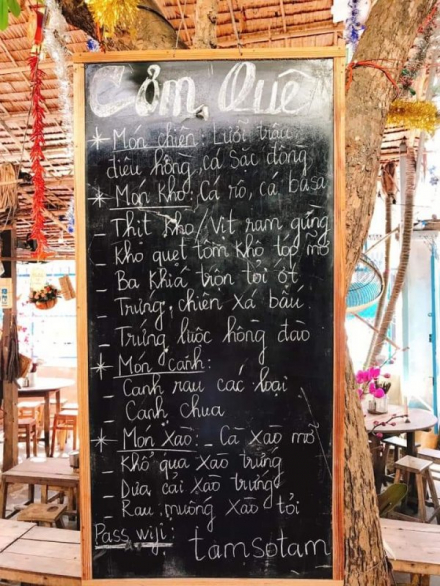 Cơm Quê
* Món chiên: Lưỡi trâu,
diêu hồng, cá sặc đồng
* Món kho: Cá rô, cá basa
- Thịt kho/Vịt ram gừng
- Kho quẹt tôm khô tóp mỡ
- Ba Khía trộn tỏi ớt
- Trứng chiên xá bấu
- Trứng luộc hồng đào
* Món canh:
- Canh rau các loại
- Canh chua
* Món xào: - Cà xào mỡ
- Khổ qua xào trứng
- Dưa cải xào trứng
- Rau muống xào tỏi
Pass wifi: tamsotam